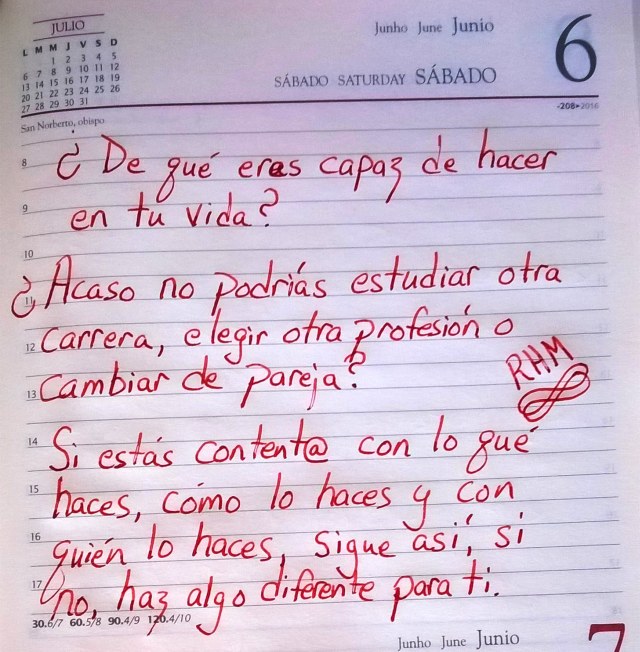 JULIO
L M M J V S D
1 2 3 4 5
6 7 8 9 10 11 12
13 14 15 16 17 18 19
20 21 22 23 24 25 26
27 28 29 30 31
Junho June Junio
6
SÁBADO SATURDAY SÁBADO
San Norberto, obispo
-208▸2016
8 ¿De qué eres capaz de hacer
9 en tu vida?
10
11 ¿Acaso no podrías estudiar otra
12 carrera, elegir otra profesión o
13 cambiar de pareja?
RHM
14 Si estás content@ con lo qué
15 haces, cómo lo haces y con
16 quién lo haces, sigue así, si
17 no, haz algo diferente para ti.
30.6/7 60.5/8 90.4/9 120.4/10
Junho June Junio
7